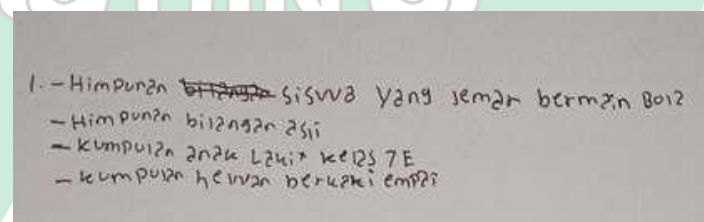 1. - Himpunan bilangan siswa yang semar bermain Bola
- Himpunan bilangan asli
- Kumpulan anak Laki² kelas 7E
- Kumpulan hewan berkaki empat